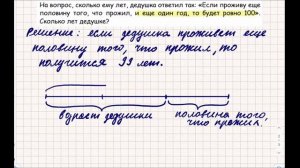 На вопрос, сколько ему лет, дедушка ответил так: «Если проживу еще
половину того, что прожил, и еще один год, то будет ровно 100».
Сколько лет дедушке?
Решение: если дедушка проживет еще
половину того, что прожил, то
получится 99 лет.
возраст дедушки
половина того,
что прожил.